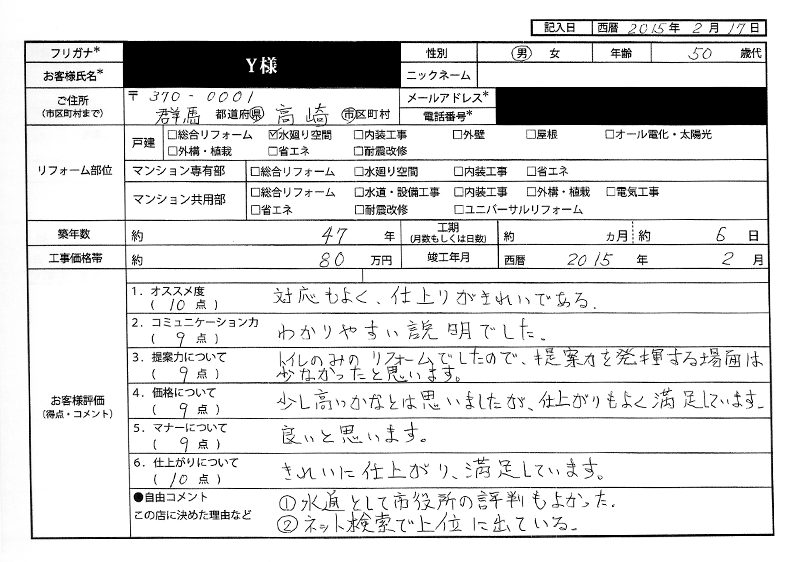 記入日 西暦 2015年 2月 17日
フリガナ* Y様 性別 男 女 年齢 50 歳代
お客様氏名* ニックネーム
ご住所 〒370-0001 メールアドレス*
(市区町村まで) 群馬 都道府県 高崎 市区町村 電話番号*
リフォーム部位 戸建 □総合リフォーム ☑水廻り空間 □内装工事 □外壁 □屋根 □オール電化・太陽光
□外構・植栽 □省エネ □耐震改修
マンション専有部 □総合リフォーム □水廻り空間 □内装工事 □省エネ
マンション共用部 □総合リフォーム □水道・設備工事 □内装工事 □外構・植栽 □電気工事
□省エネ □耐震改修 □ユニバーサルリフォーム
築年数 約 47 年 工期(月数もしくは日数) 約 ヵ月 約 6 日
工事価格帯 約 80 万円 竣工年月 西暦 2015 年 2 月
お客様評価
(得点・コメント)
1.オススメ度
(10点) 対応もよく、仕上りがきれいである.
2.コミュニケーション力
(9点) わかりやすい説明でした.
3.提案力について
(9点) トイレのみのリフォームでしたので、提案力を発揮する場面は
少なかったと思います。
4.価格について
(9点) 少し高いかなとは思いましたが、仕上がりもよく満足しています.
5.マナーについて
(9点) 良いと思います。
6.仕上がりについて
(10点) きれいに仕上がり、満足しています。
●自由コメント
この店に決めた理由など
①水道として市役所の評判もよかった.
②ネット検索で上位に出ている.